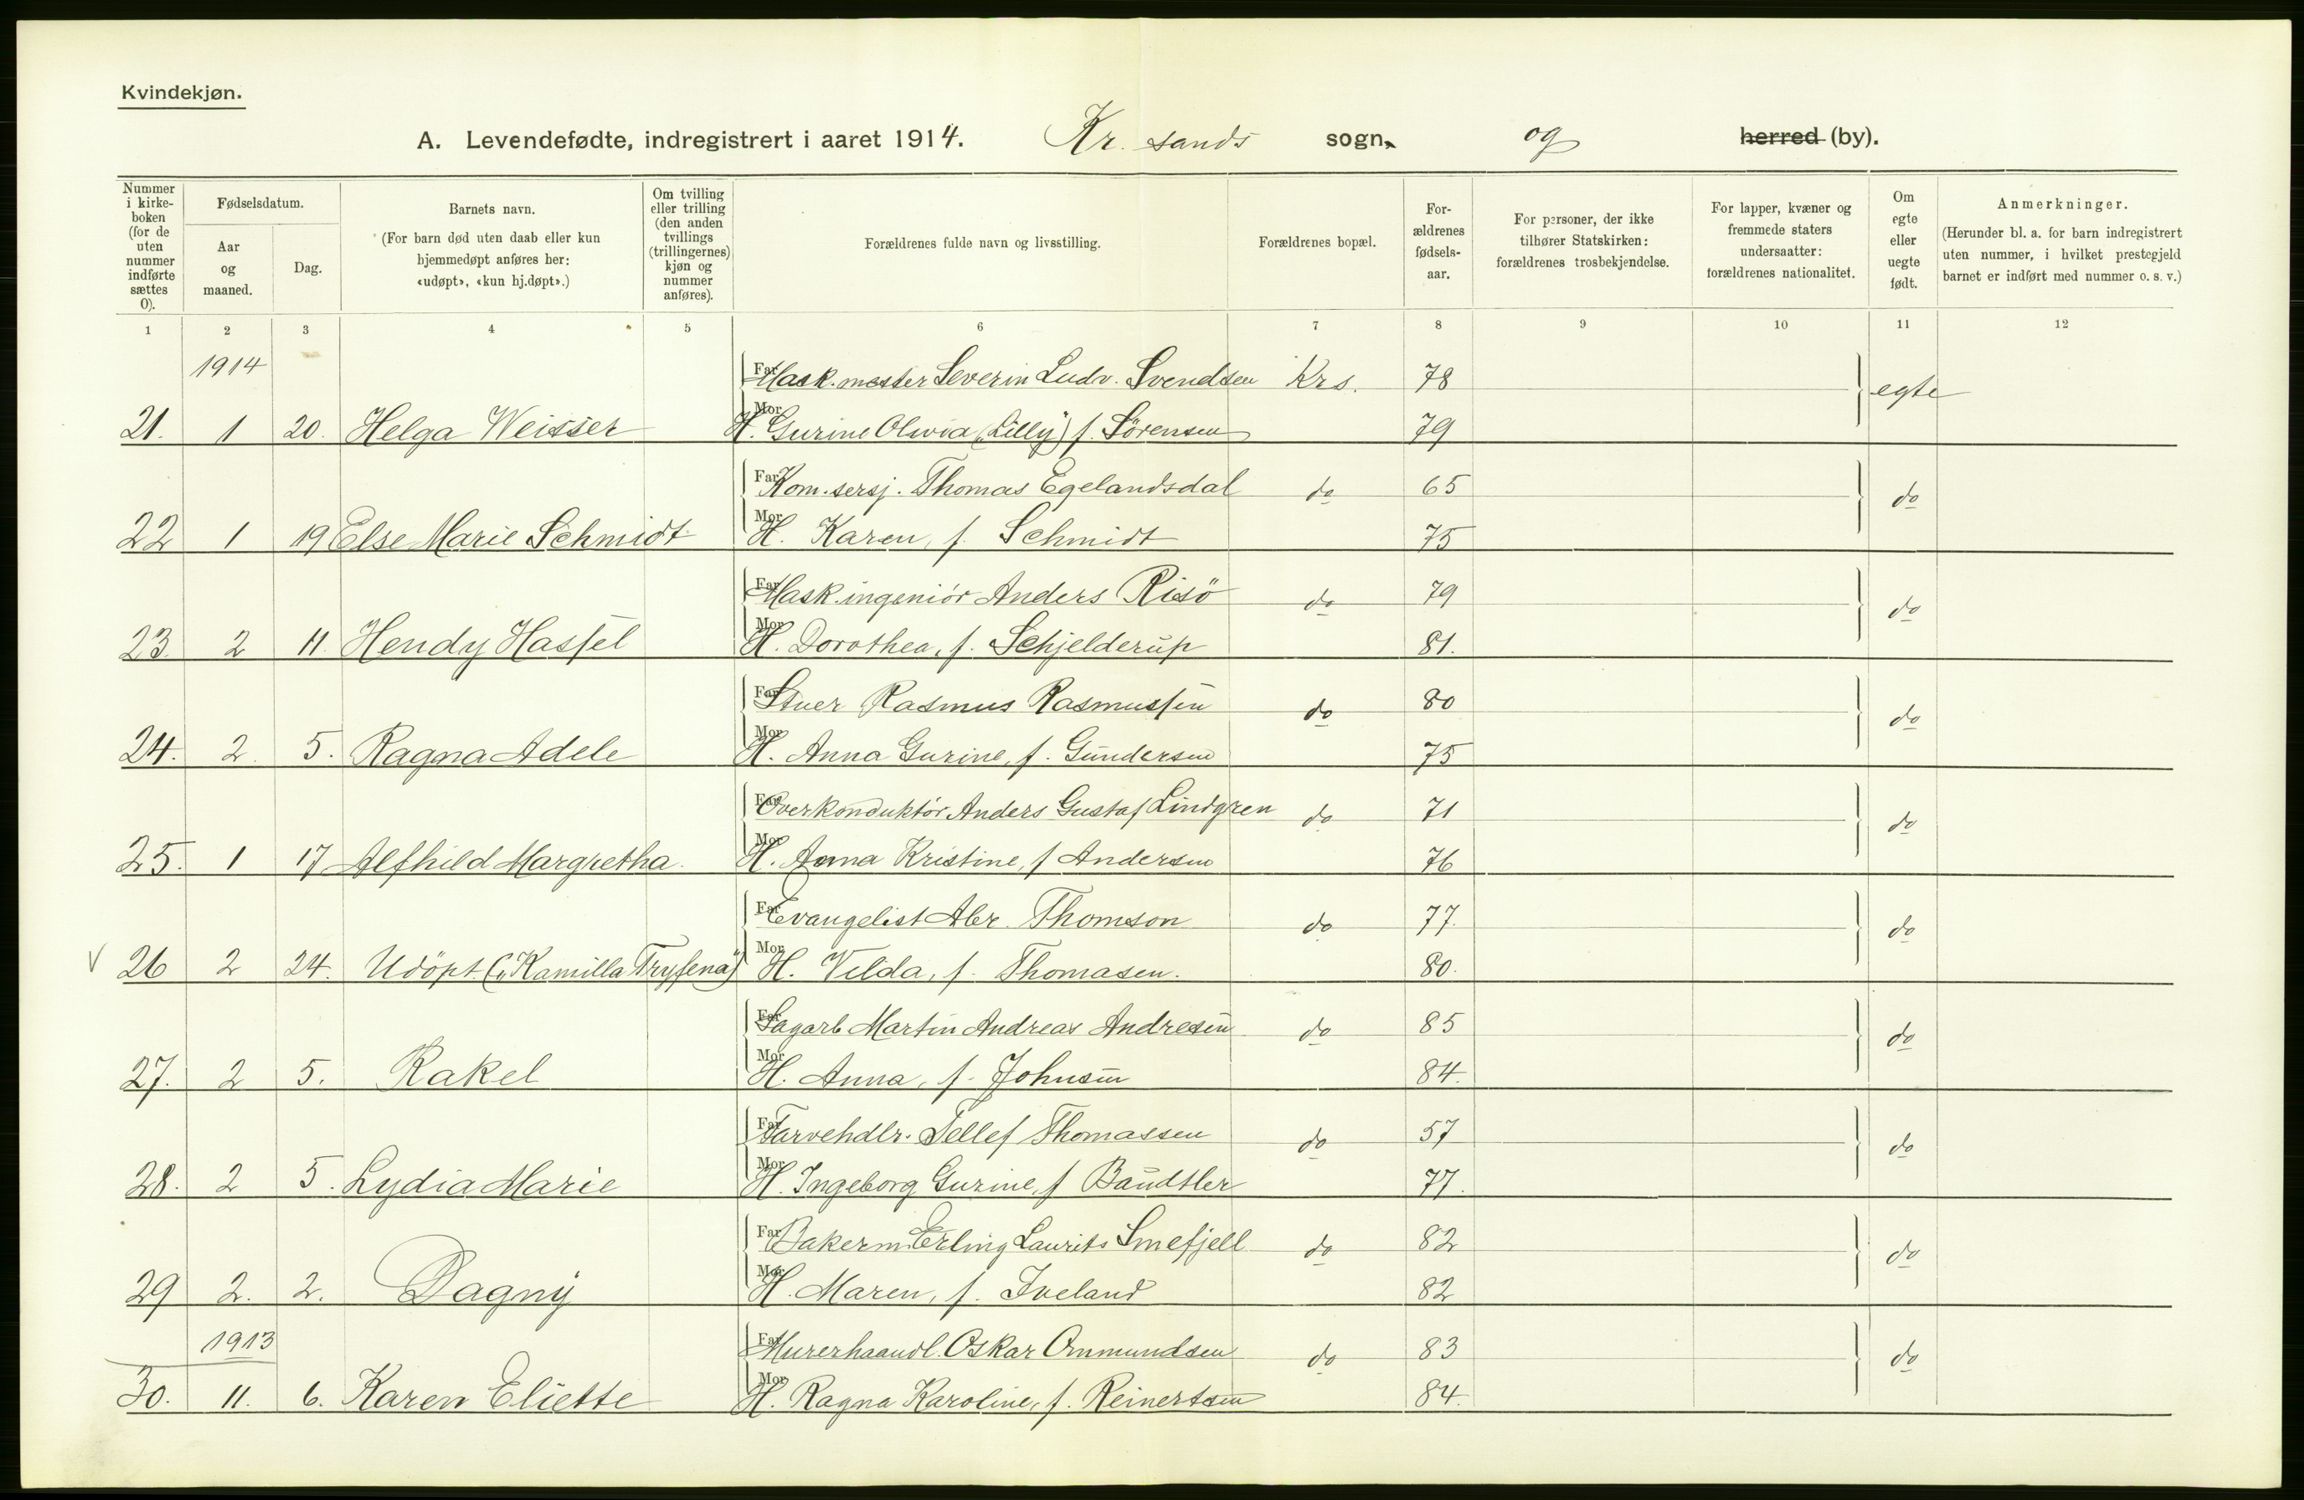 Kvindekjøn.
A. Levendefødte, indregistrert i aaret 1914. Kr. sands sogn, og herred (by).
Nummer i kirkeboken (for de uten nummer indførte sættes 0).
Fødselsdatum.
Aar og maaned.
Dag.
Barnets navn.
(For barn død uten daab eller kun hjemmedøpt anføres her: «udøpt», «kun hj.døpt».)
Om tvilling eller trilling (den anden tvillings (trillingernes) kjøn og nummer anføres).
Forældrenes fulde navn og livsstilling.
Forældrenes bopæl.
Forældrenes fødselsaar.
For personer, der ikke tilhører Statskirken: forældrenes trosbekjendelse.
For lapper, kvæner og fremmede staters undersaatter: forældrenes nationalitet.
Om egte eller uegte født.
Anmerkninger.
(Herunder bl. a. for barn indregistrert uten nummer, i hvilket prestegjeld barnet er indført med nummer o. s. v.)
1 2 3 4 5 6 7 8 9 10 11 12
1914
Far Mask.mester Severin Ludv. Svendsen Krs. 78 egte
21. 1 20. Helga Weisser Mor H. Gurine Olivia (Lilly) f. Sørensen 79
Far Kom.sersj. Thomas Egelandsdal do 65 do
22 1 19 Else Marie Schmidt Mor H. Karen, f. Schmidt 75
Far Mask.ingeniör Anders Risö do 79 do
23. 2 11. Hendy Hassel Mor H. Dorothea, f. Schjelderup 81.
Far Stuer Rasmus Rasmussen do 80 do
24. 2. 5. Ragna Adele Mor H. Anna Gurine, f. Gundersen 75
Far Overkonduktör Anders Gustaf Lindgren do 71 do
25. 1 17 Alfhild Margretha. Mor H. Anna Kristine, f Andersen 76
Far Evangelist Abr. Thomson do 77. do
V 26 2 24. Udöpt („Kamilla Tryfena") Mor H. Velda, f. Thomasen. 80.
Far Sagarb Martin Andreas Andresen do 85 do
27. 2 5. Rakel Mor H. Anna, f. Johnsen 84.
Far Farvehdlr. Tellef Thomassen do 57 do
28. 2 5. Lydia Marie Mor H. Ingeborg Gurine, f Baudtler 77.
Far Bakerm. Erling Laurits Smefjell do 82 do
29 2. 2. Dagny Mor H. Maren, f. Iveland 82
1913
Far Murerhaandl. Oskar Ommundsen do 83 do
30. 11. 6. Karen Eliette Mor H. Ragna Karoline, f. Reinertsen 84.